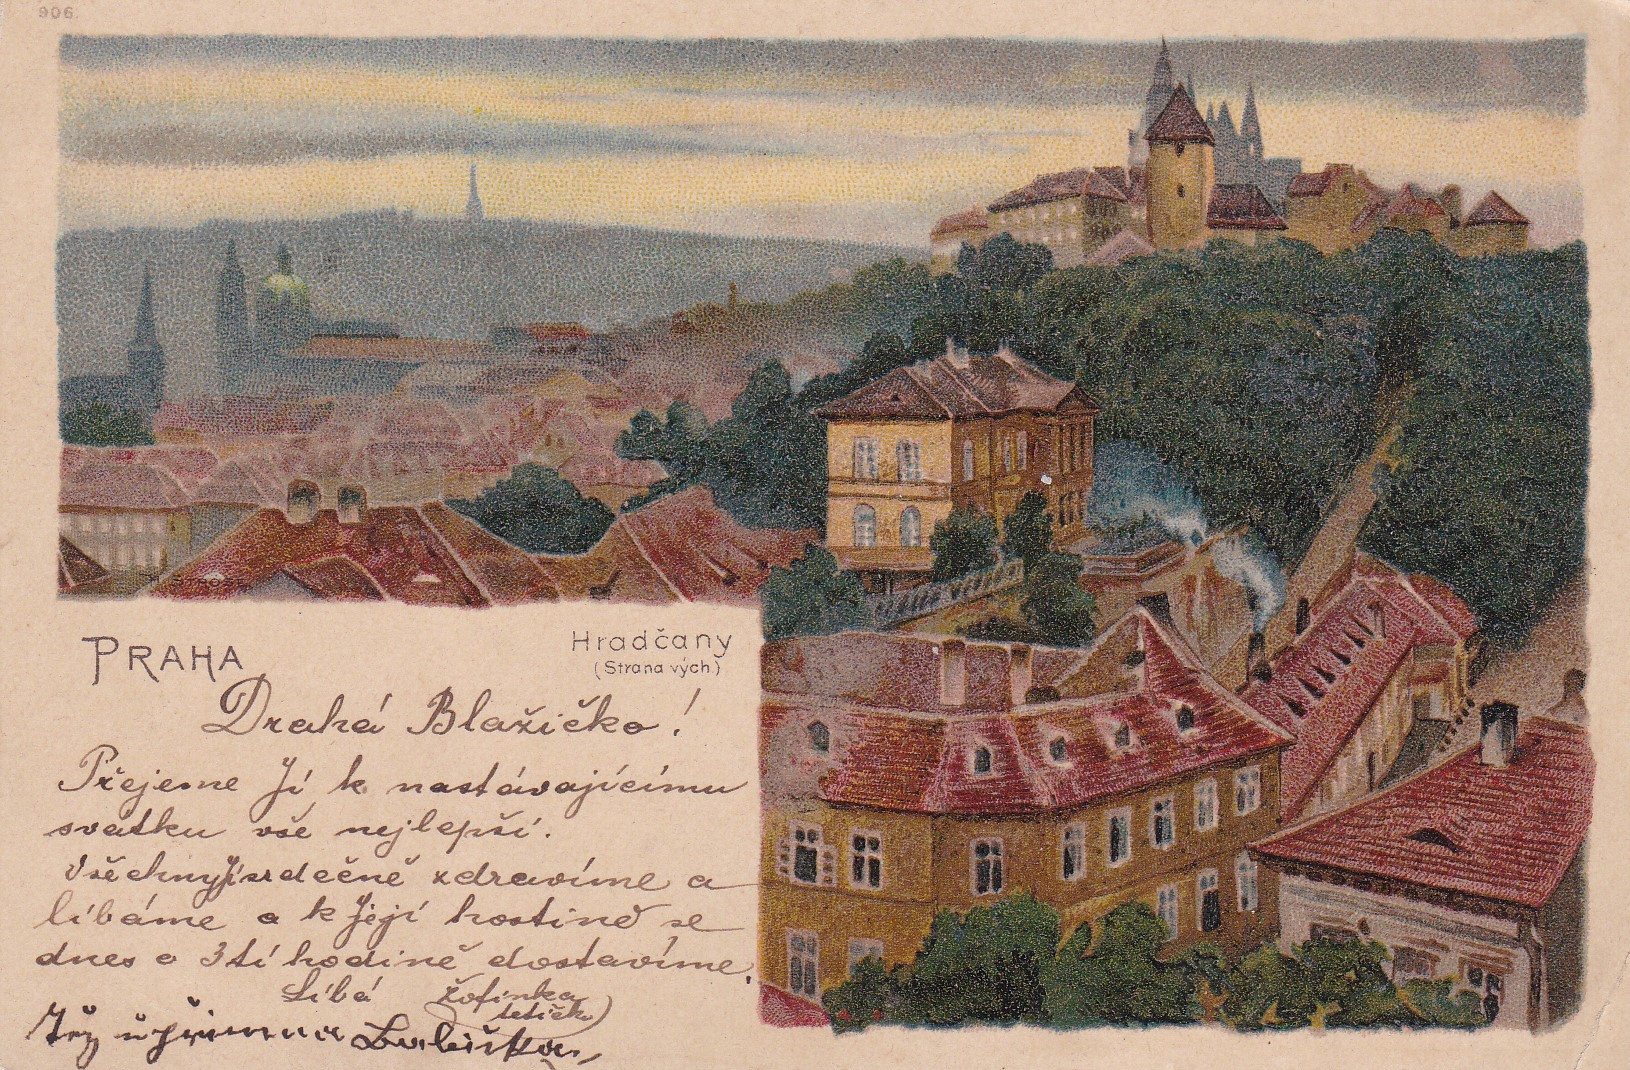 906.
PRAHA
Hradčany
(Strana vých.)
Drahá Blažičko!
Přejeme Jí k nastávajícímu
svatku vše nejlepší.
Všechny Jí srdečně zdravíme a
líbáme a k Její hostině se
dnes o 3tí hodině dostavíme.
Líbá Žofinka
tetičk)
Též upřímná